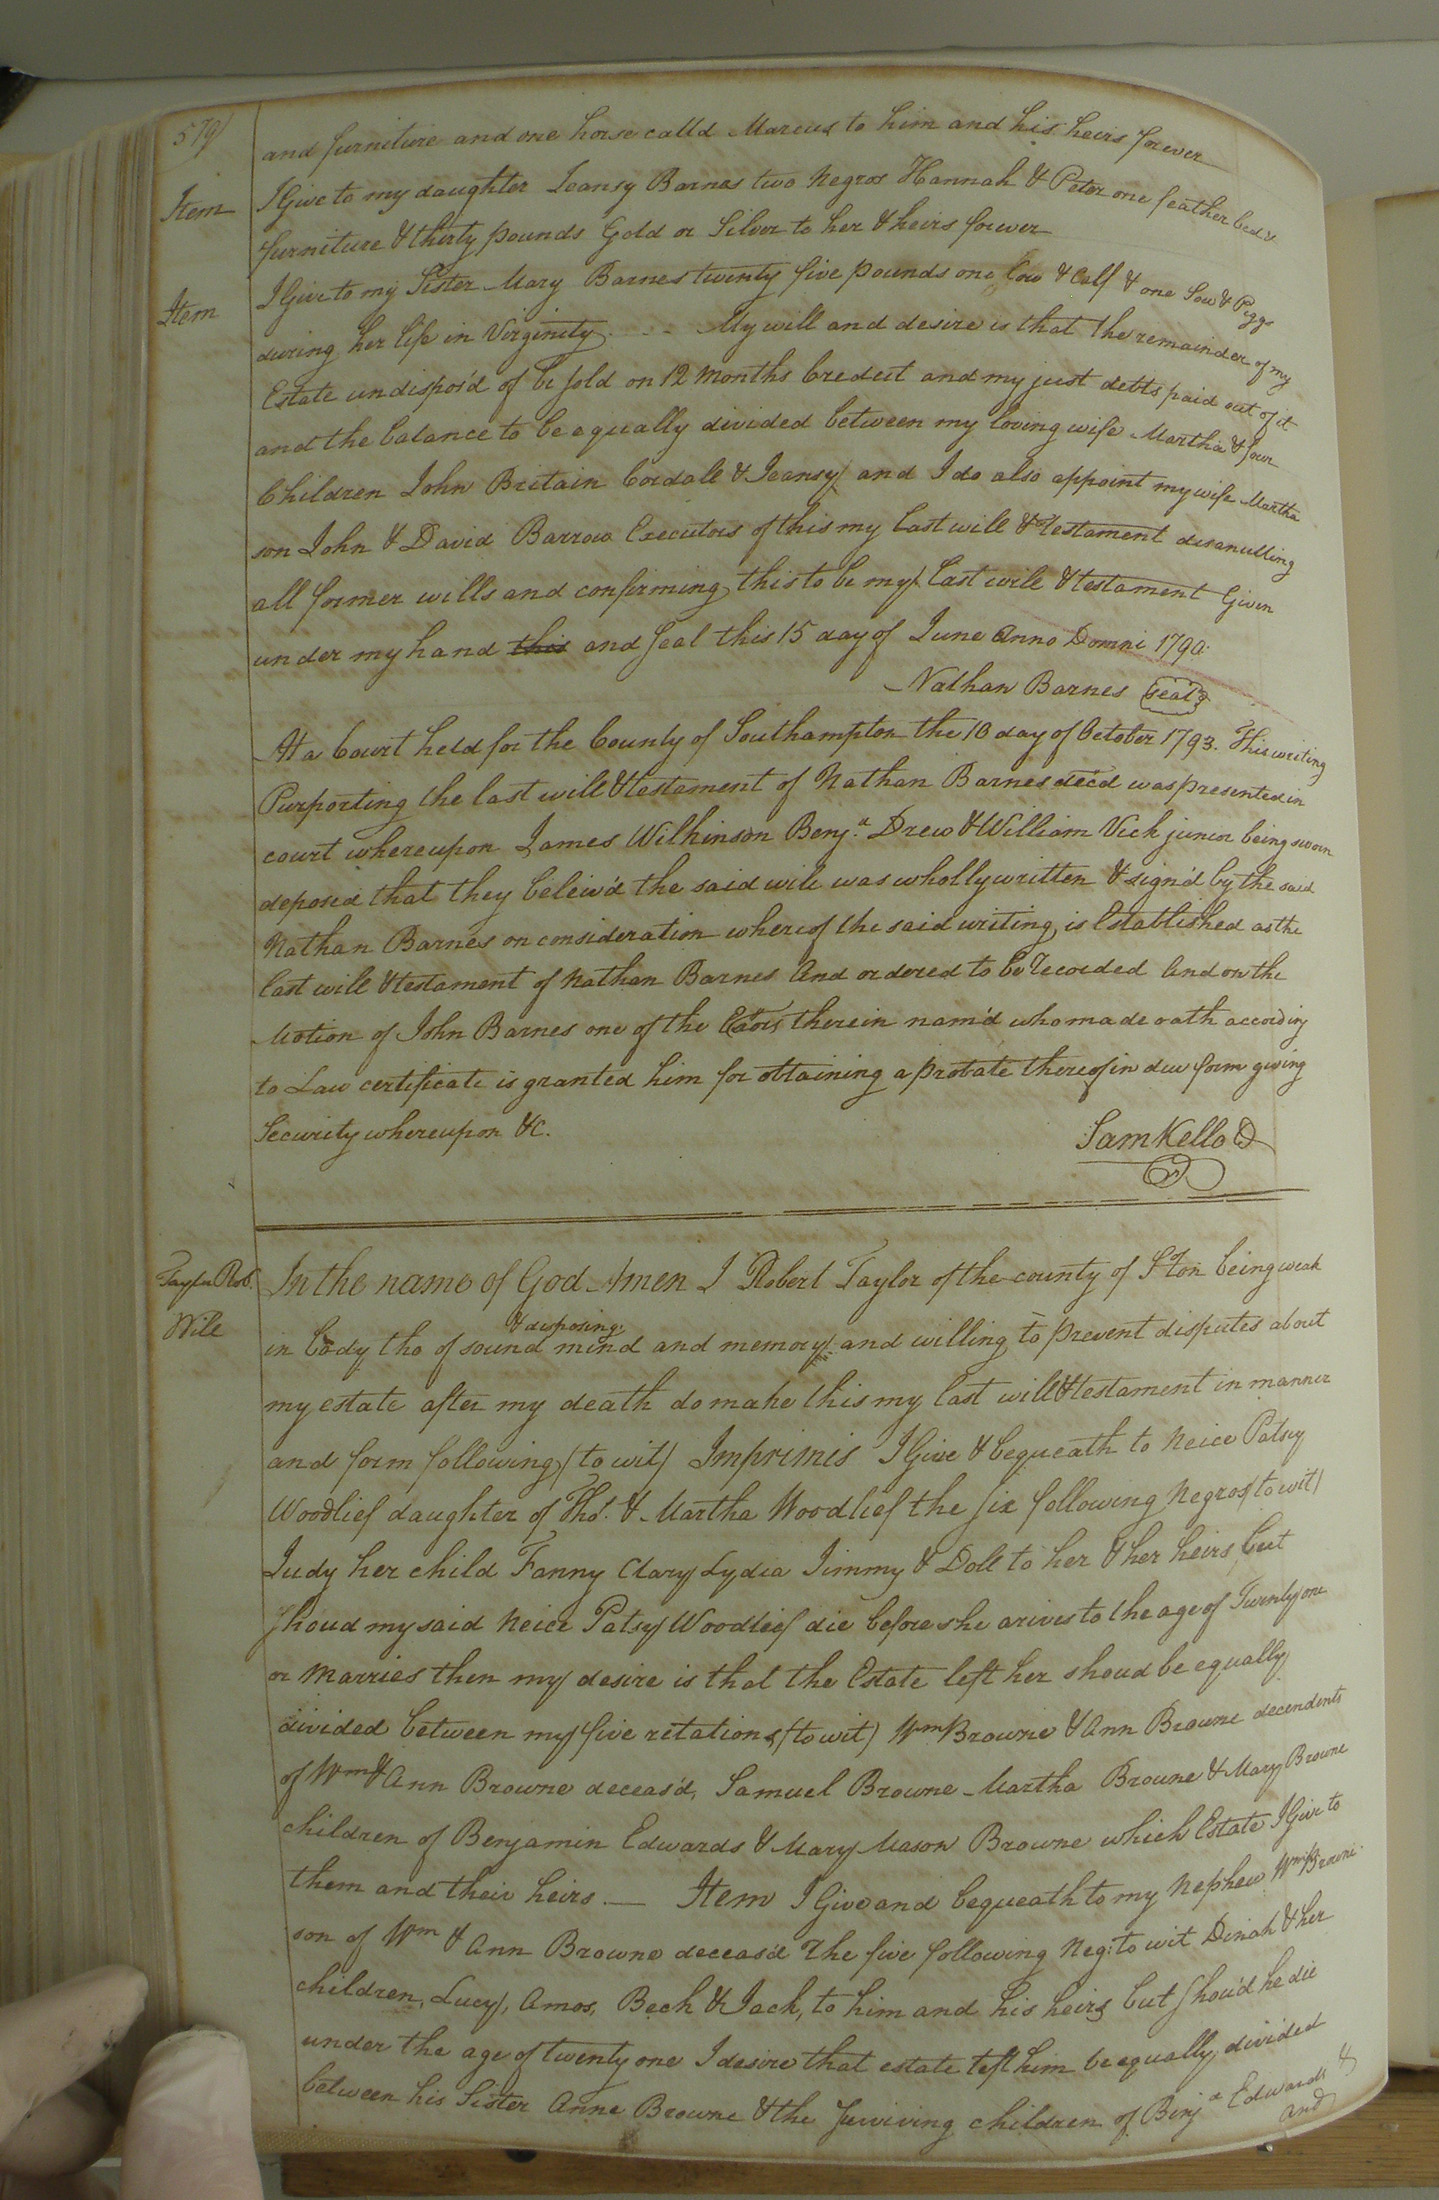 579
and furniture and one horse calld Marcus to him and his heirs forever
Item I Give to my daughter Jeansy Barnes two Negros Hannah & Peter one feather bed &
furniture & thirty pounds Gold or Silver to her & heirs forever
Item I Give to my Sister Mary Barnes twenty five pounds one Cow & Calf & one Sow & Piggs
during her life in Virginity. - - My will and desire is that the remainder of my
Estate undispos'd of be sold on 12 Months Credeit and my just debts paid out of it
and the balance to be equally divided between my loving wife Martha & four
Children John Britain Cordall & Jeansy and I do also appoint my wife Martha
son John & David Barrow Executors of this my last will & testament disanulling
all former wills and confirming this to be my last will & testament Given
under my hand this and Seal this 15 day of June Anno Domni 1790.
Nathan Barnes seal
At a Court held for the County of Southampton the 10 day of October 1793. This writing
Purporting the last will & testament of Nathan Barnes dec'd was presented in
court whereupon James Wilkinson Benj.ª Drew & William Vick junior being sworn
deposed that they beleiv'd the said will was wholly written & sign'd by the said
Nathan Barnes on consideration whereof the said writing is Established as the
last will & testament of Nathan Barnes And ordered to be recorded And on the
Motion of John Barnes one of the Exors therein nam'd who made oath according
to Law certificate is granted him for obtaining a probate thereof in due form giving
Security whereupon &c.
Sam Kello
Taylor Rob.
Will
In the name of God Amen I Robert Taylor of the county of S'ton being weak
in body tho of sound & disposing mind and memory and willing to prevent disputes about
my estate after my death do make this my last will & testament in manner
and form following (to wit) Imprimis I Give & bequeath to Neice Patsy
Woodlief daughter of Tho.s & Martha Woodlief the six following Negros (to wit)
Judy her child Fanny Clary Lydia Jimmy & Doll to her & her heirs but
shoud my said Neice Patsy Woodlief die before she arives to the age of Twenty one
or Marries then my desire is that the Estate left her shoud be equally
divided between my five relations (to wit) Wm Browne & Ann Browne decendents
of Wm & Ann Browne deceas'd, Samuel Browne Martha Browne & Mary Browne
children of Benjamin Edwards & Mary Mason Browne which Estate I Give to
them and their heirs. — Item I Give and bequeath to my Nephew Wm Browne
son of Wm & Ann Browne deceas'd The five following Neg: to wit Dinah & her
children, Lucy, Amos, Beck & Jack, to him and his heirs but shou'd he die
under the age of twenty one I desire that estate left him be equally divided
between his Sister Anne Browne & the surviving children of Benj.ª Edwards &
and